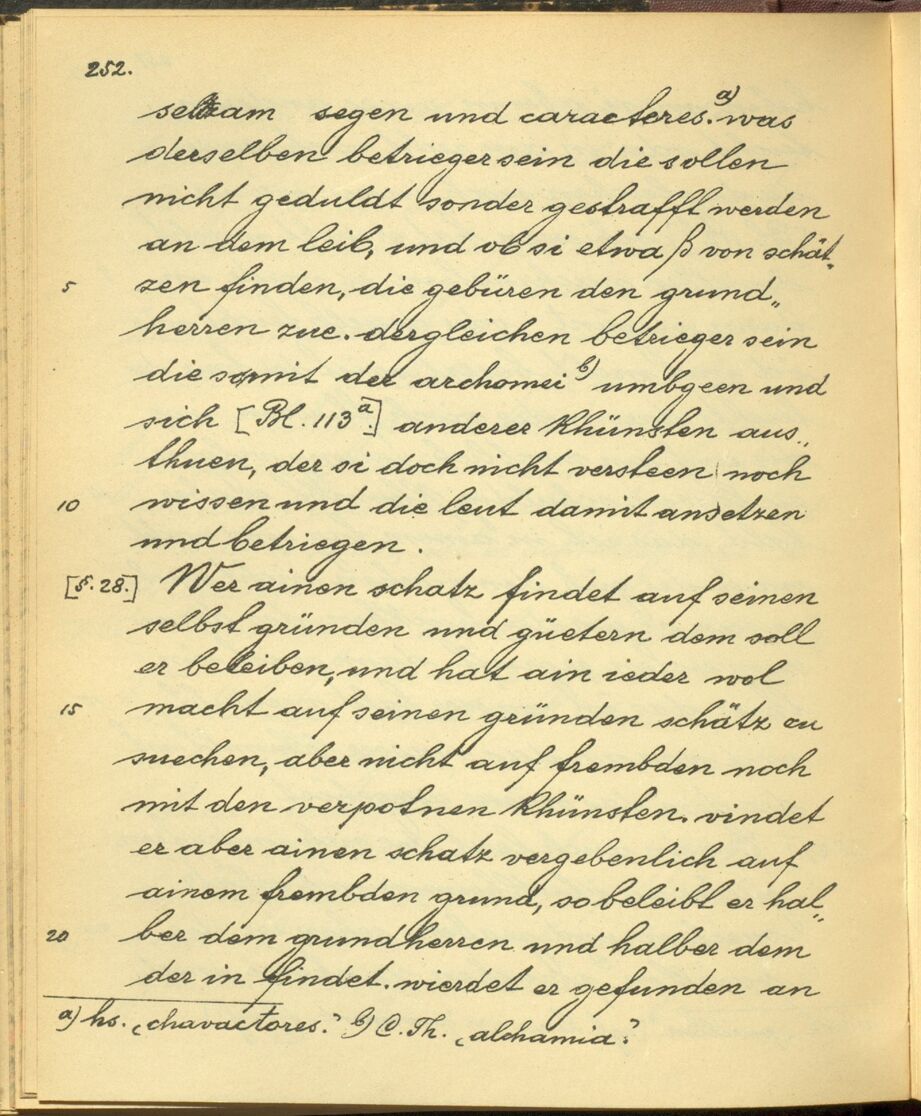 252.
seltzam segen und caracteres.a) was
derselben betrieger sein die sollen
nicht geduldt sonder gestrafft werden
an dem leib, und ob si etwa ß von schät„
5 zen finden, die gebüren den grund„
herren zue. dergleichen betrieger sein
die so mit der archomei b) umbgeen und
sich [Bl. 113a.] anderer khünsten aus„
thuen, der si doch nicht versteen noch
10 wissen und die leut damit ansetzen
und betriegen.
[§. 28.] Wer ainen schatz findet auf seinen
selbst gründen und güetern dem soll
er beleiben, und hat ain ieder wol
15 macht auf seinen gründen schätz zu
suechen, aber nicht auf frembden noch
mit den verpotnen khünsten. vindet
er aber ainen schatz vergebenlich auf
ainem frembden grund, so beleibt er hal„
20 ber dem grundherren und halber dem
der in findet. wierdet er gefunden an
a) hs. „chavactores.“ b) C. Th. „alchamia“.